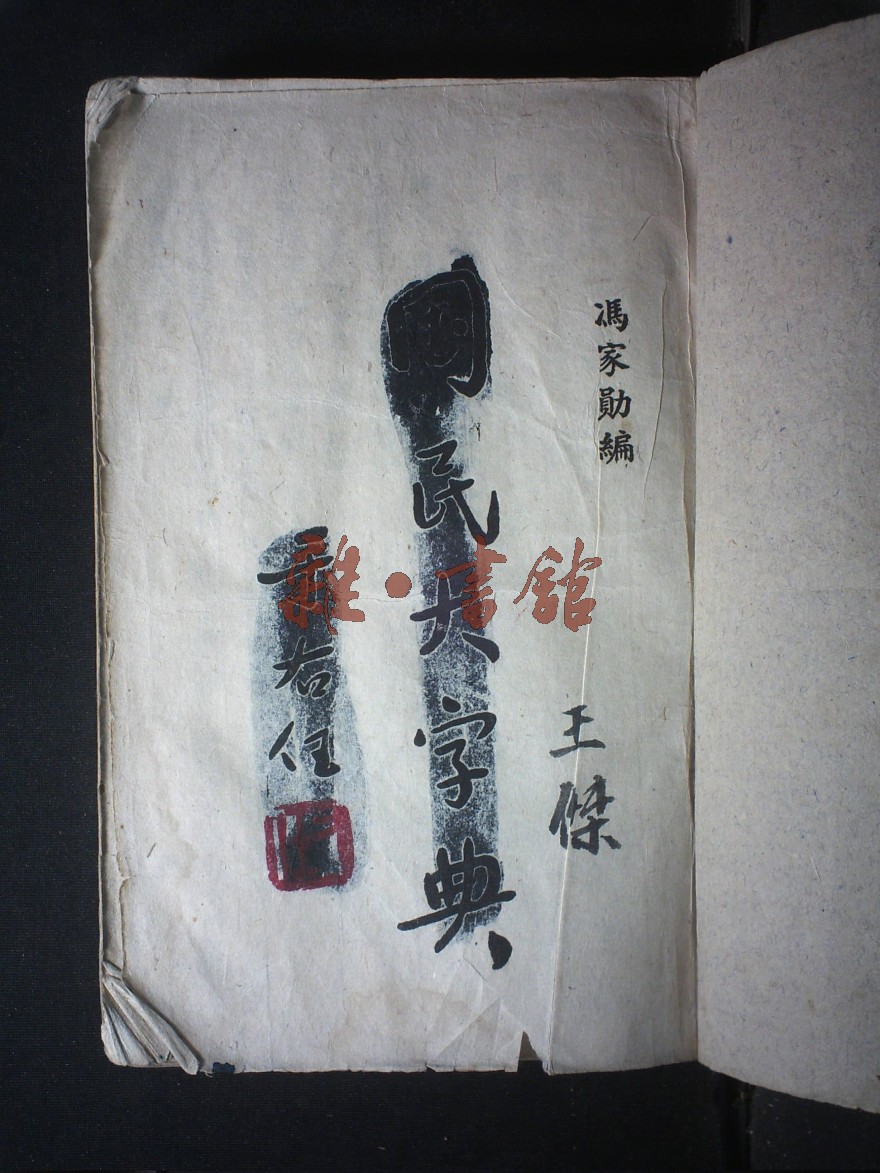 馮家勛編
王傑
國民大字典
于右任
雜·書館